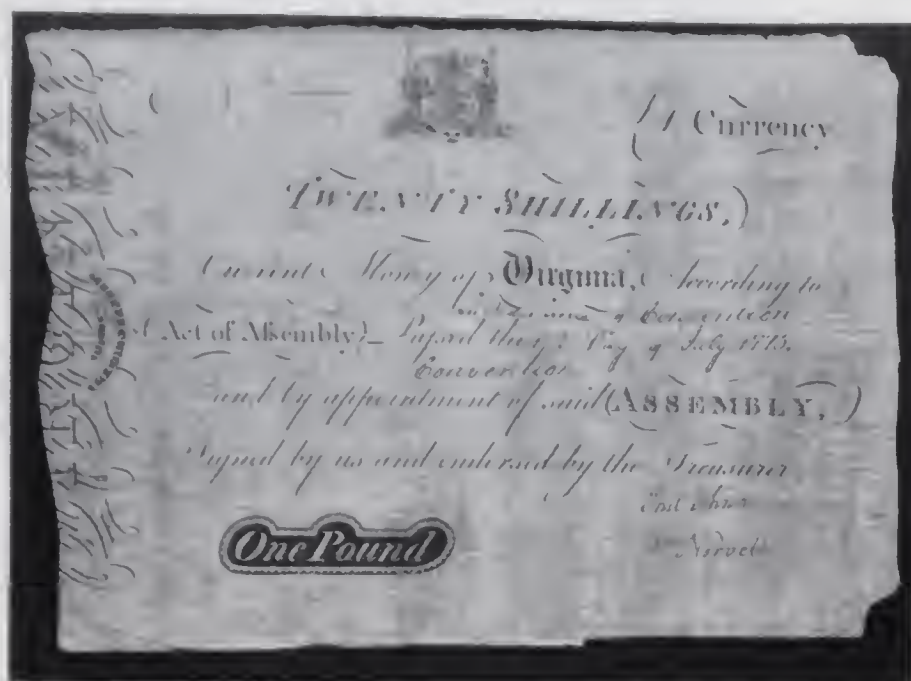 Currency
TWENTY SHILLINGS,
Current Money of Virginia, According to
Ordinance of Convention
Act of Assembly Passed the Day of July 1775.
Convention
and by appointment of said ASSEMBLY,
Signed by us and endorsed by the Treasurer
One Pound